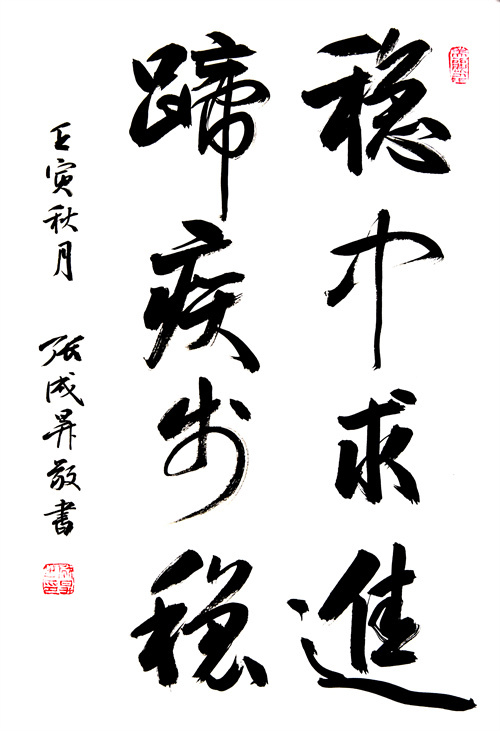 稳中求進
蹄疾步稳
壬寅秋月 张成昇敬書